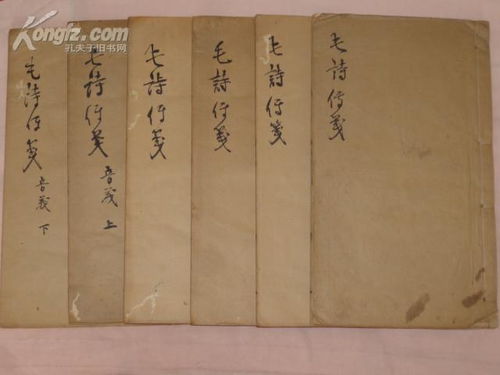 Kongfz.com
孔夫子旧书网
毛詩傳箋
毛詩傳箋
毛詩傳箋
毛詩傳箋
毛詩傳箋 音義 上
毛詩傳箋 音義 下